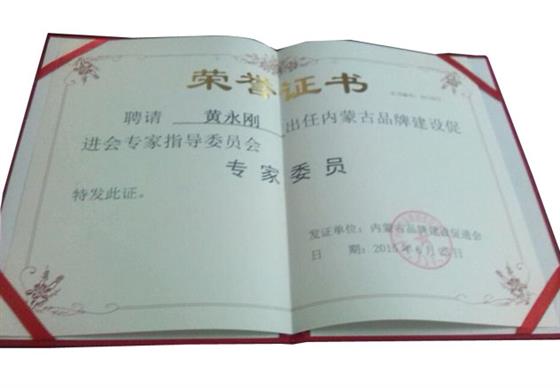 荣誉证书
聘请 黄永刚 出任内蒙古品牌建设促
进会专家指导委员会
专家委员
特发此证。
发证单位：内蒙古品牌建设促进会
日 期：2015年6月25日